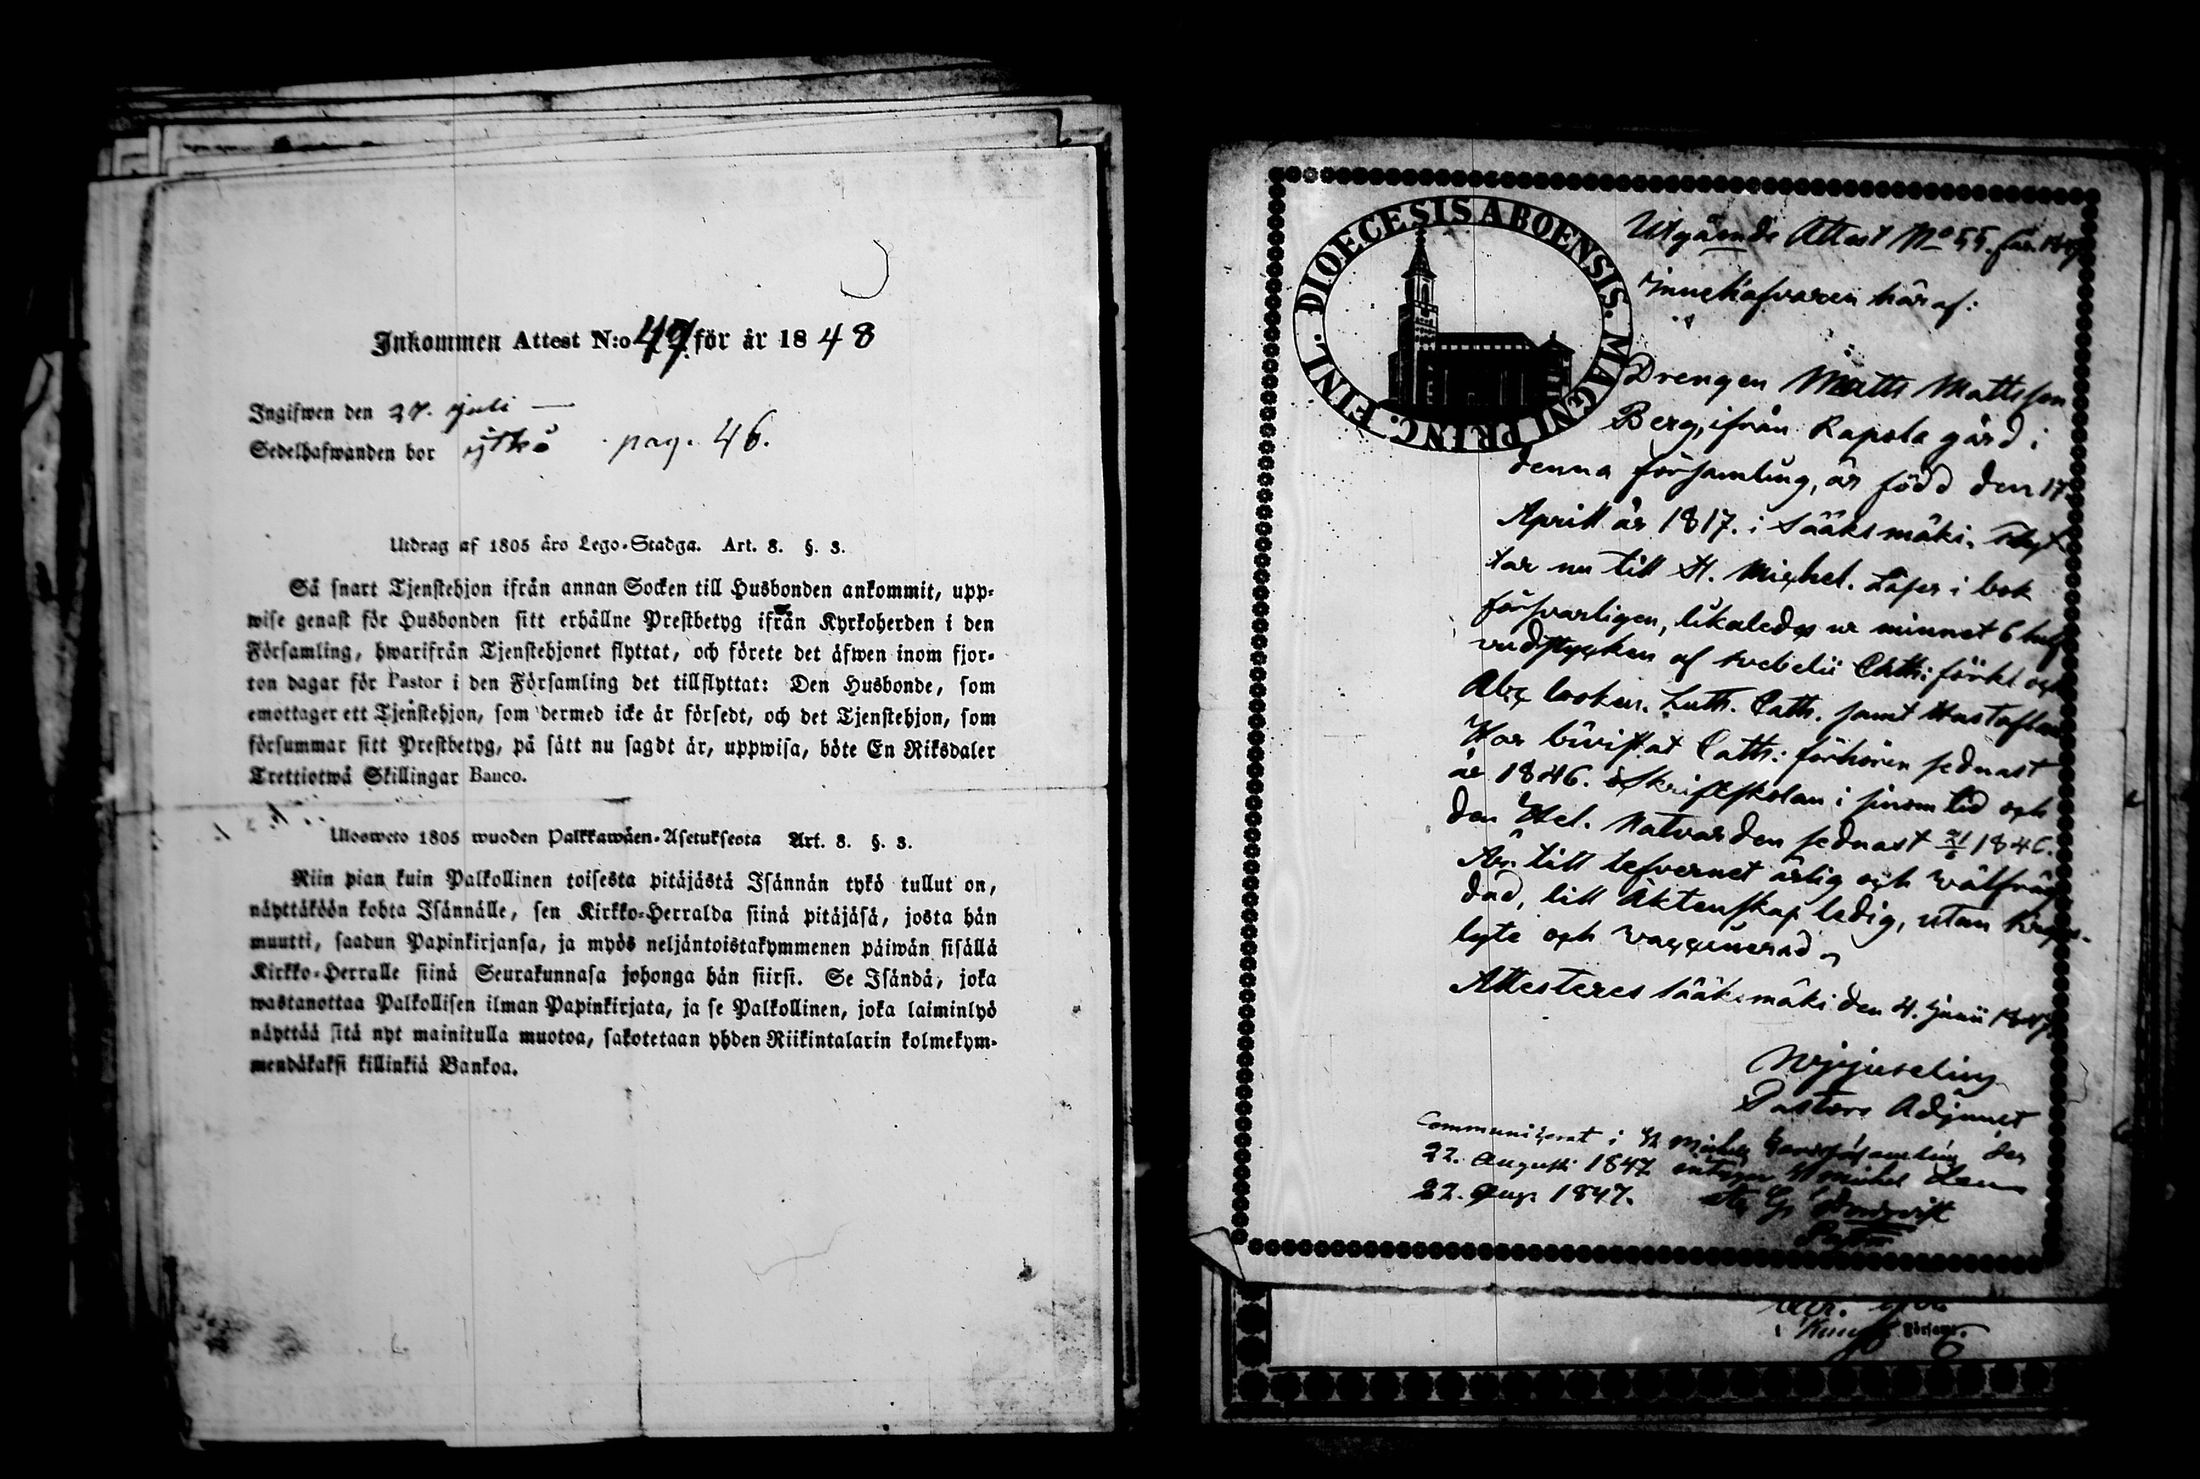 Inkommen Attest N:o 47 för år 1848
Ingifwen den 27. Juli —
Sedelhafwanden bor Ytkö pag. 46.
Utdrag af 1805 års Lego-Stadga. Art. 8. §. 3.
Så snart Tjenstehjon ifrån annan Socken till Husbonden ankommit, upp-
wise genast för Husbonden sitt erhållne Prestbetyg ifrån Kyrkoherden i den
Församling, hwarifrån Tjenstehjonet flyttat, och förete det äfwen inom fjor-
ton dagar för Pastor i den Församling det tillflyttat: Den Husbonde, som
emottager ett Tjenstehjon, som dermed icke är försedt, och det Tjenstehjon, som
försummar sitt Prestbetyg, på sätt nu sagdt är, uppwisa, böte En Riksdaler
Trettiotwå Skillingar Banco.
Ulosweto 1805 wuoden Palkkawäen-Asetuksesta Art. 8. §. 3.
Niin pian kuin Palkollinen toisesta pitäjästä Isännän tykö tullut on,
näyttäköön kohta Isännälle, sen Kirkko-Herralda siinä pitäjäsä, josta hän
muutti, saadun Papinkirjansa, ja myös neljäntoistakymmenen päiwän sisällä
Kirkko-Herralle siinä Seurakunnasa johonga hän siirsi. Se Isändä, joka
wastanottaa Palkollisen ilman Papinkirjata, ja se Palkollinen, joka laiminlyö
näyttää sitä nyt mainitulla muotoa, sakotetaan yhden Riikintalarin kolmekym-
mendäkaksi killinkiä Bankoa.
DIOECESIS ABOENSIS. MAGNI PRINC. FINL.
Utgående Attest No 55. från 1847
Innehafvaren häraf:
Drengen Matts Mattsson
Berg, ifrån Rapola gård i
denna församling, är född den 17
April år 1817. i Sääksmäki. Flyt
tar nu till St. Michel. Läser i bok
försvarligen, likaledes ur minnet 6 huf
vudstycken af Svebelii Cath: förkl och
Abc boken. Luth. Cath. samt Hustaflan
Har bivistat Cath: förhören sednast
år 1846. Skriftskolan i sinom tid och
den Hel. Natvarden sednast 1846.
Är till lefvernet ärlig och välfräg
dad, till Äktenskap ledig, utan kropps-
lyte och vaccinerad
Attesteres Sääksmäki den 4. Junii 1847.
Pastors Adjunct
Communicerat i St Michels Landsförsamling den
22. Augusti 1847 St Michel den
22. Aug. 1847.
Pastor